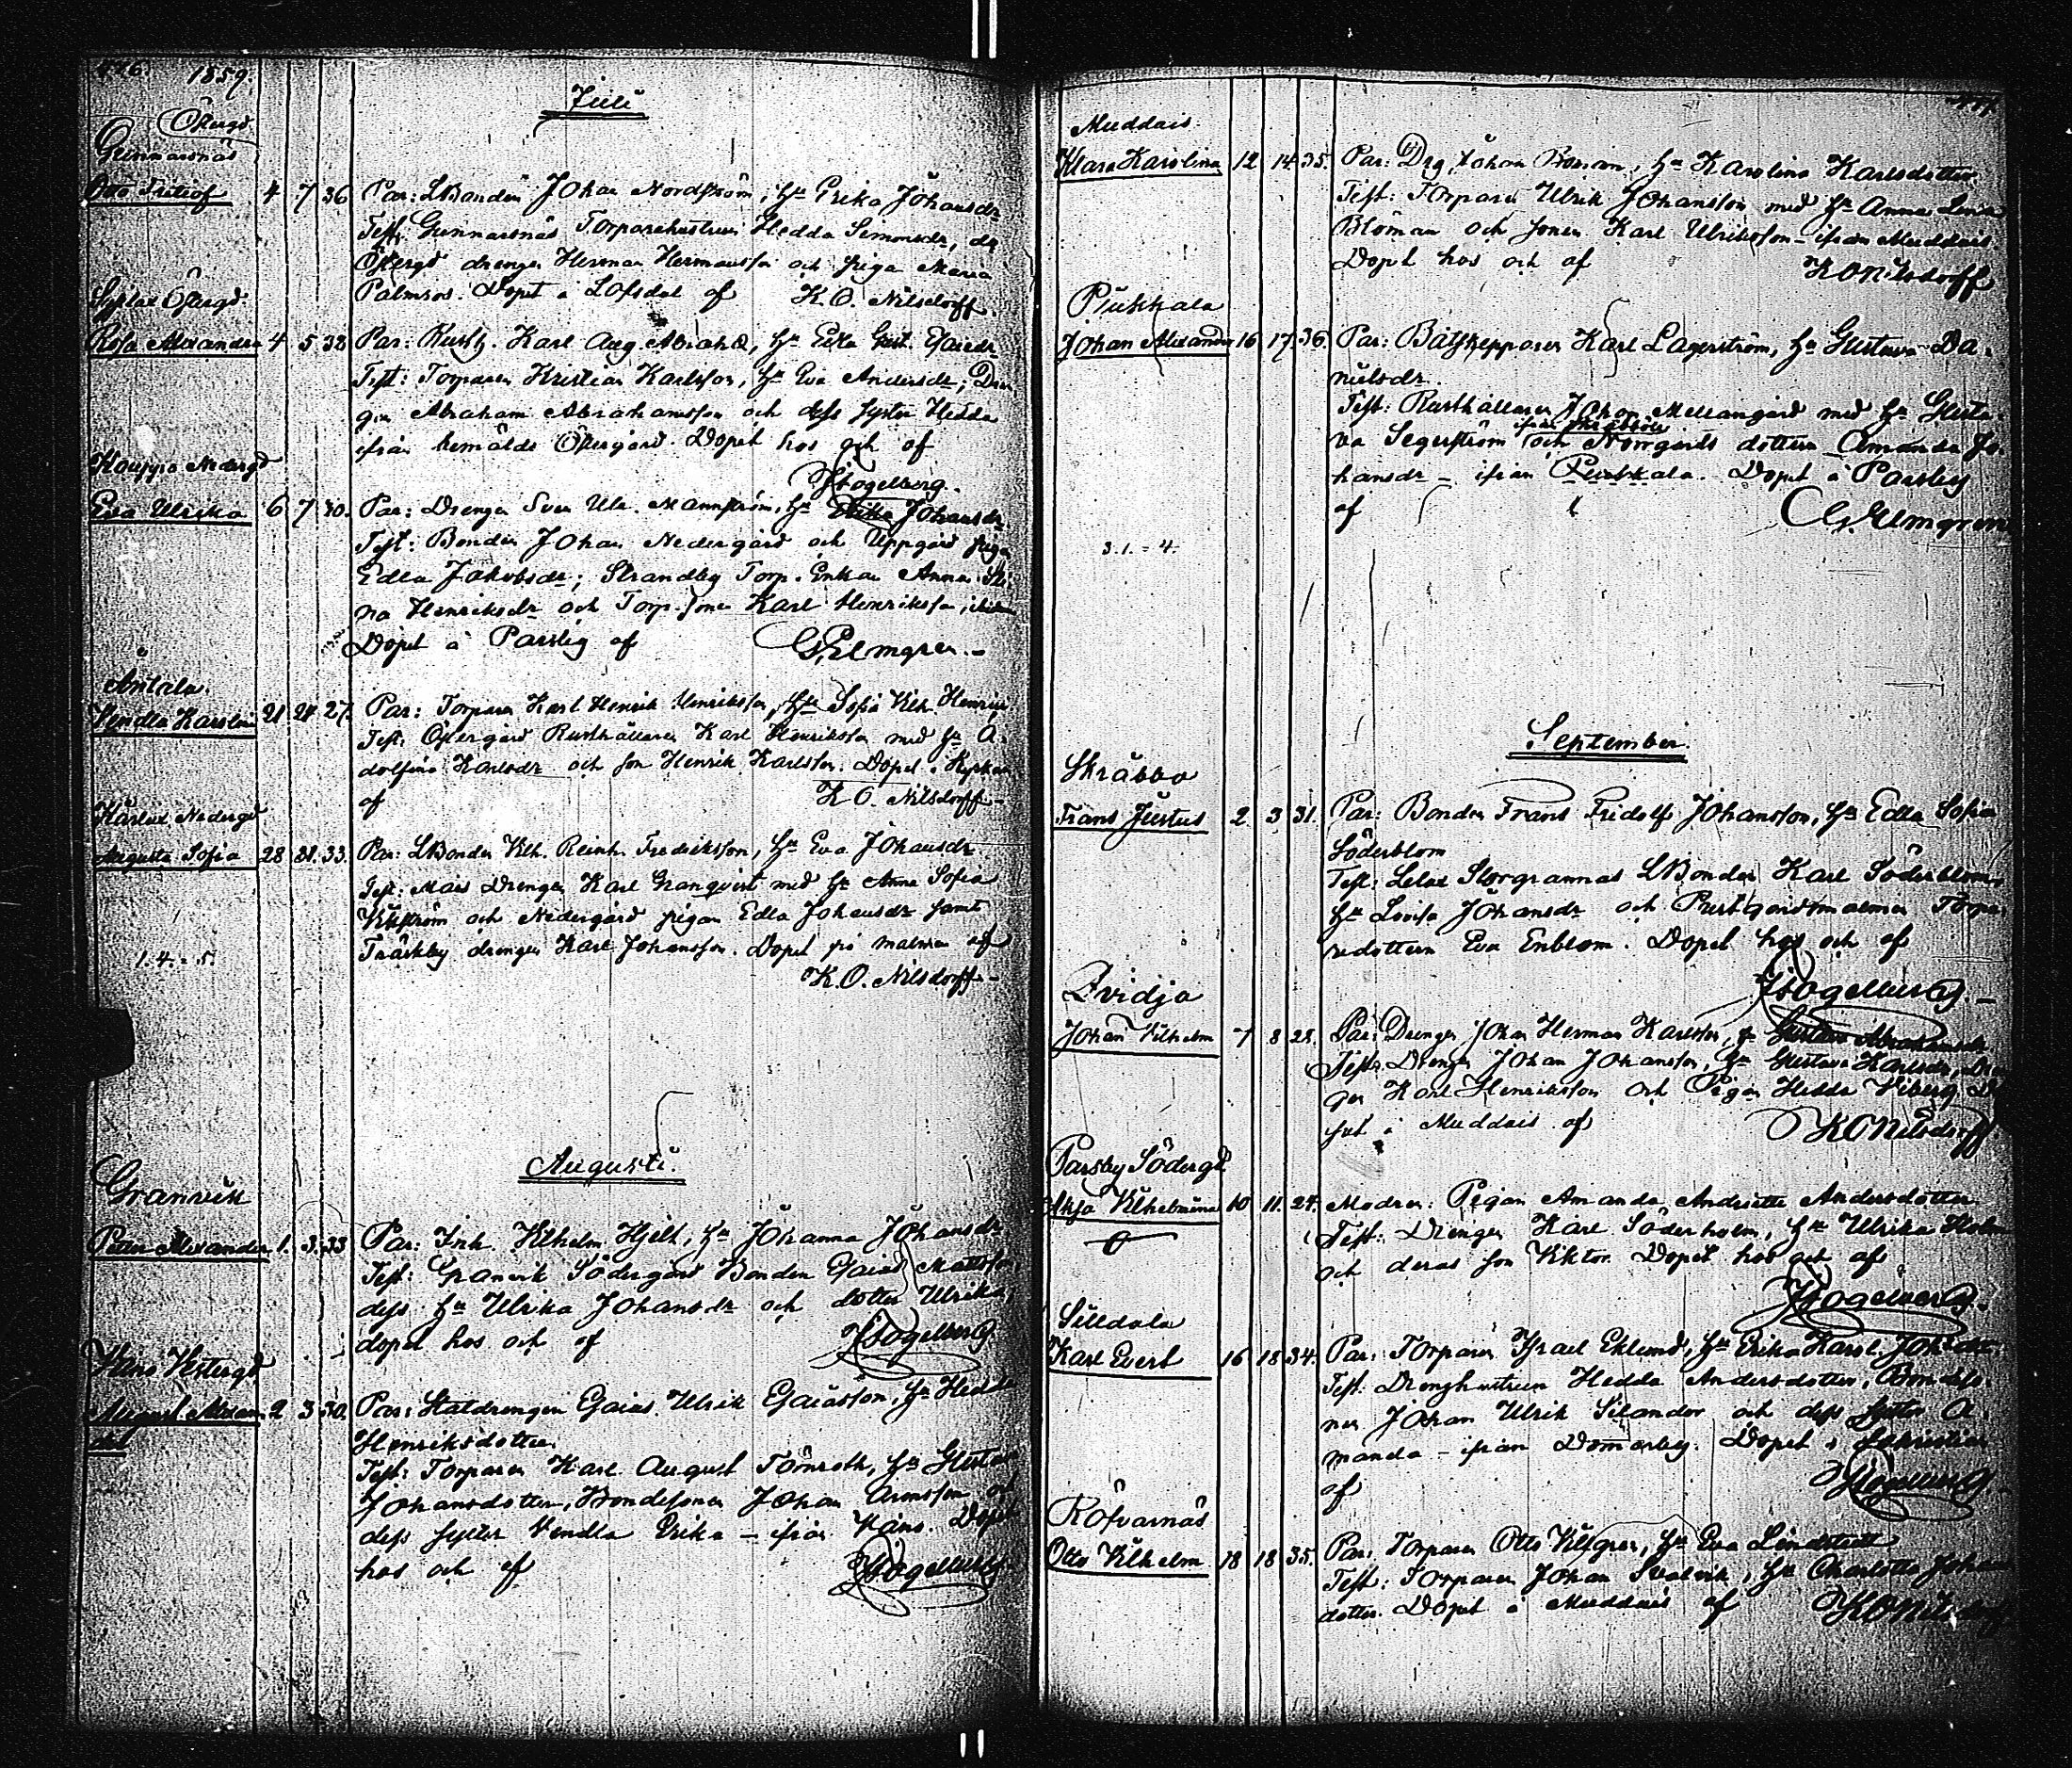 476. 1859.
Juli
Östergd
Gunnarsnäs
Otto Fritiof 4 7 36 Par: LBonden Johan Nordström, hu Erika Johansdr
Test: Gunnarsnäs Torparehustrun Hedda Simonsdr,
Östergd drengen Herman Hermansson och pigan Maria
Palmros. Döpt i Lofsdal af K. O. Nilsdorff.
Sydlax Östergd
Rosa Alexandra 4 5 38 Par: Rusth. Karl Aug. Abrah, hu Edla Gust.
Test: Torparen Kristian Karlsson, hu Eva Andersdr; Dren
gen Abraham Abrahamsson och dess syster Hedda
ifrån bemälde Östergård. Döpt hos och af
Hogelberg.
Nedergd
Eva Ulrika 6 7 30. Par: Drengen Sven Ulr. Mannström, hu Erika Johansdr
Test: Bonden Johan Nedergård och Uppgård pigan
Edla Jakobsdr; Strandby Torp. Enkan Anna Sti
na Henriksdr och Torp. sonen Karl Henriksson,
Döpt i Parsby af G. Elmgren.
Antala.
Vendla Karolina 21 24 27. Par: Torparen Karl Henrik Henriksson, hu Sofia Vilh. Henriks
Test: Östergård Rusthållaren Karl Henriksson med hu A
dolfina Karlsdr och son Henrik Karlsson. Döpt i Kyrkan
af K O. Nilsdorff
Nedergd
Augusta Sofia 28 31. 33. Par: LBonden Vilh. Reinh. Fredriksson, hu Eva Johansdr.
Test: Drengen Karl Granqvist med hu Anna Sofia
och Nedergård pigan Edla Johansdr samt
Träskby drengen Karl Johansson. Döpt på malmen af
1. 4. = 5. K. O. Nilsdorff
Augusti.
Granvik
Petter Alexander 1. 3. 33 Par: Inh. Vilhelm Hjelt, hu Johanna Johansdr
Test: Granvik Södergård Bonden Gajus Mattsson
dess hu Ulrika Johansdr och dotter Ulrika,
döpt hos och af Hogelberg.
Vestergd
August 2 3 30. Par: Statdrengen Gajus Ulrik Gajusson, hu Hedda
Henriksdotter.
Test: Torparen Karl August Törnroth, hu Gustava
Johansdotter, Bondesonen Johan Aronsson och
dess syster Vendla Erika – ifrån Döpt
hos och af Hogelberg.
Muddais
Klara Karolina 12 14 35. Par: Drg Johan Boman, hu Karolina Karlsdotter
Test: Torparen Ulrik Johansson med hu Anna Lena
Bloman och sonen Karl Ulriksson – ifrån Muddais
Döpt hos och af K O Nilsdorff
Pjukkala
Johan Alexander 16 17. 36. Par: Båtskepparen Karl Lagerström, hu Gustava Da
nielsdr.
Test: Rusthållaren Johan Mellangård med hu Gusta
va Segerström ifrån och Norrgårds dottern Amanda Jo
hansdr – ifrån Pjukkala. Döpt i Parsby
af G. Elmgren
3. 1. = 4.
September.
Skräbbo
Frans Justus 2. 3 31. Par: Bonden Frans Fridolf Johansson, hu Edla Sofia
Söderblom
Test: Lelax Storgrannas LBonden Karl Söderblom,
hu Lovisa Johansdr och Torpa
redottern Eva Enblom. Döpt hos och af
Hogelberg.
Qvidja
Johan Vilhelm 7 8 28. Par: Drengen Johan Herman Karlsson, hu Gustava
Test: Drengen Johan Johansson, hu Gustava Karlsdr, Dren
gen Karl Henriksson och Pigan Hedda Viberg Dö
pt i Muddais af K O Nilsdorff
Parsby Södergd.
Vilhelmina 10 11. 24. Modren: Pigan Amanda Andriette Andersdotter
Test: Drengen Karl Söderholm, hu Ulrika
och deras son Viktor. Döpt hos och af
Hogelberg.
Silldala
Karl Evert 16 18 34. Par: Torparen Israel Eklund, hu Erika Karol. Johsdr
Test: Drenghustrun Hedda Andersdotter, Bondeso
nen Johan Ulrik Silander och dess syster A
manda – ifrån Domarby. Döpt i
af Hogelberg.
Röfvarnäs
Otto Vilhelm 18 18 35. Par: Torparen Otto Vilsgren, hu Eva Lindstedt
Test: Torparen Johan Svalvik, hu Charlotta Johans
dotter. Döpt i Muddais af K O Nilsdorff